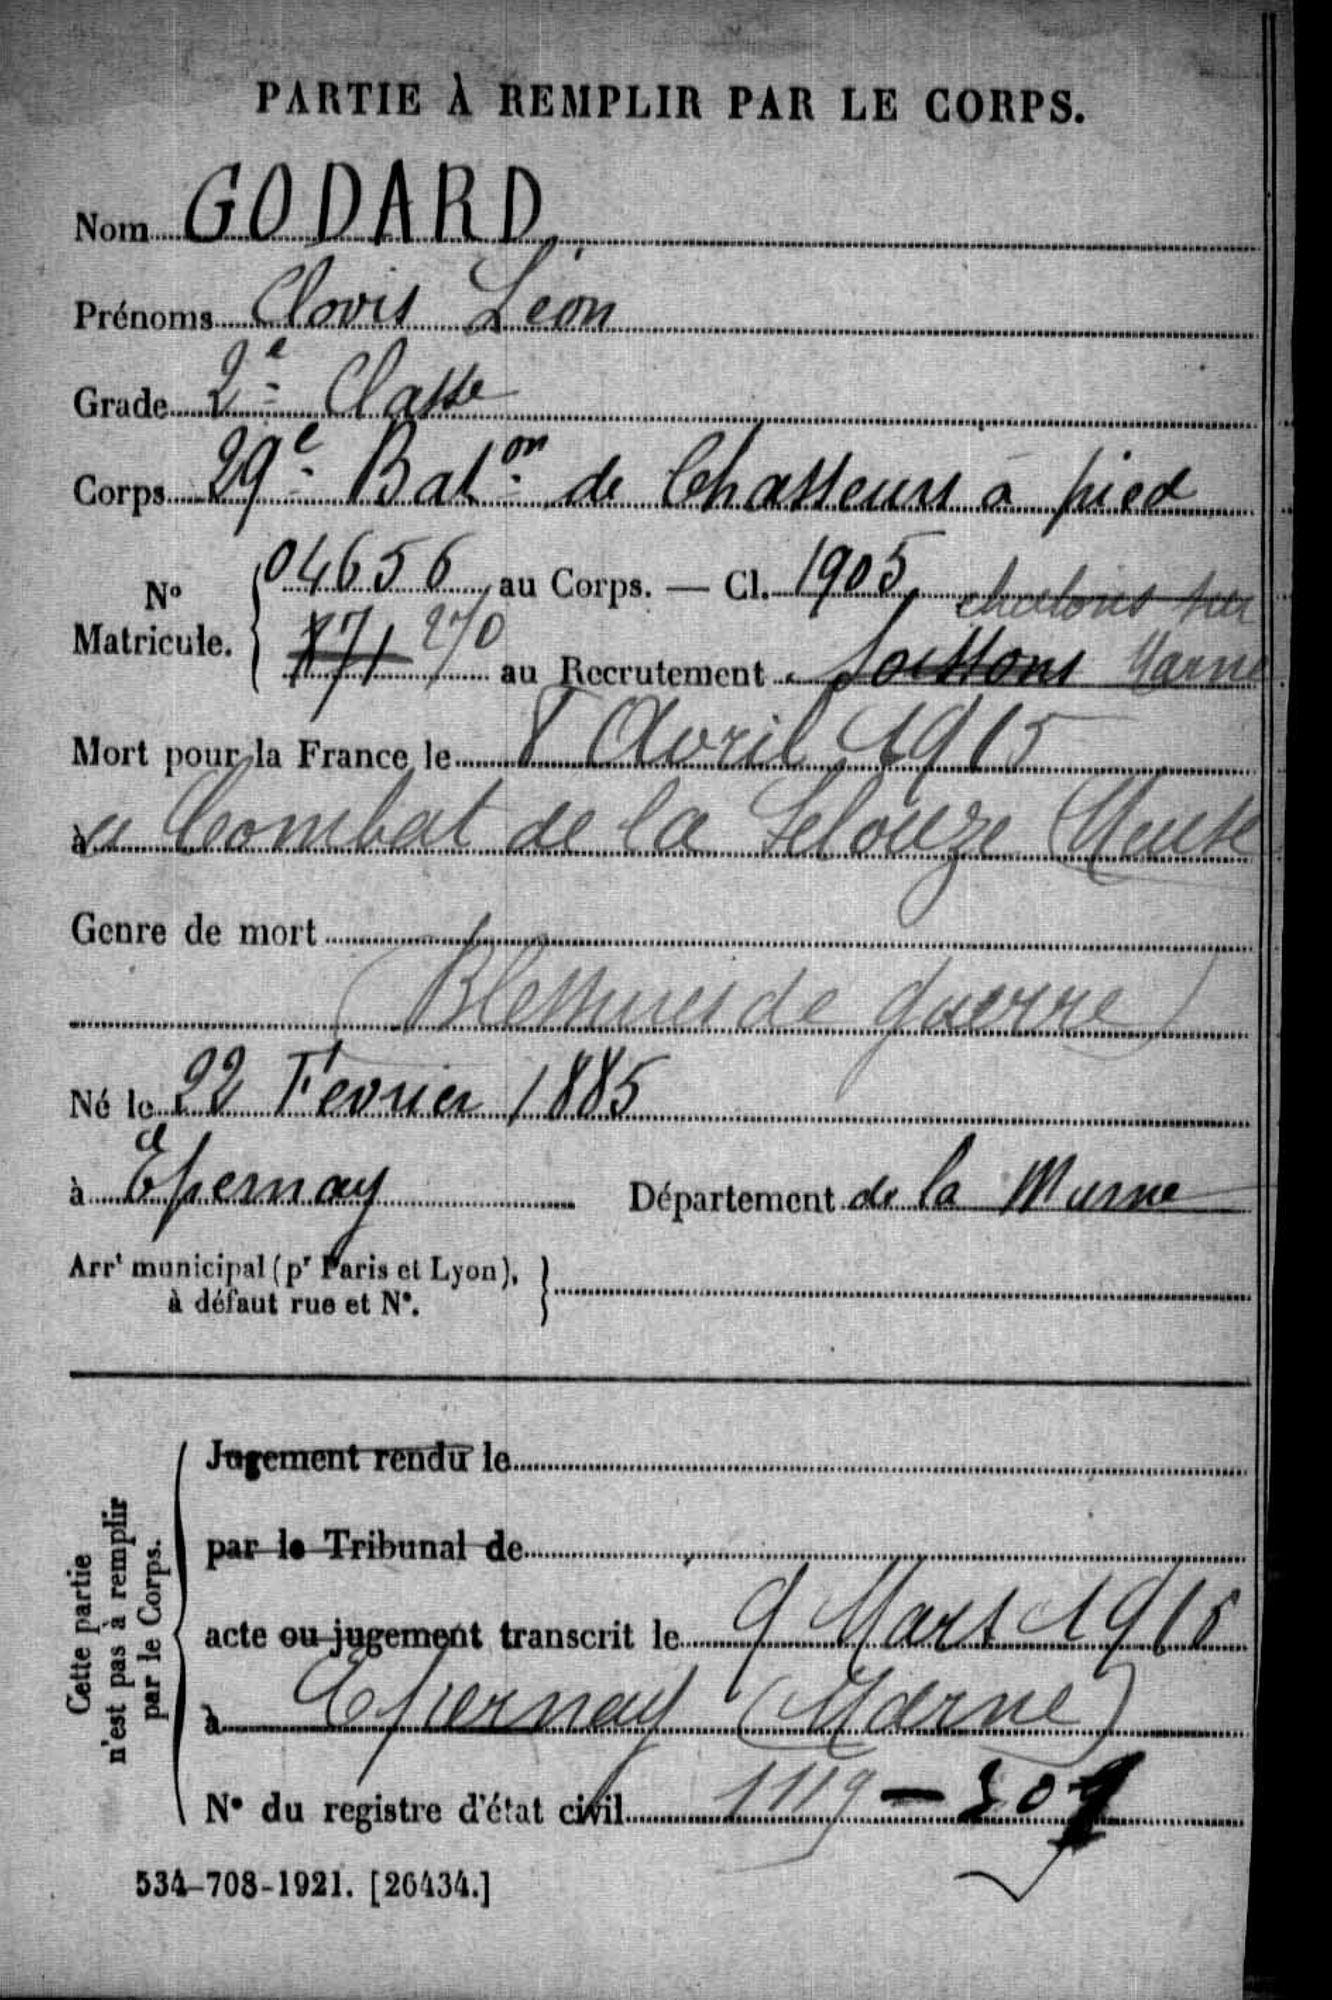 PARTIE À REMPLIR PAR LE CORPS.
Nom GODARD
Prénoms Clovis Léon
Grade 2e Classe
Corps 29e Baton de Chasseurs à pied
No Matricule. { 04656 au Corps. — Cl. 1905
171 270 au Recrutement Soissons chalons sur Marne
Mort pour la France le 8 Avril 1915
à Combat de la Selouze Meuse
Genre de mort
(Blessures de guerre)
Né le 22 Fevrier 1885
à Epernay Département de la Marne
Arrt municipal (pr Paris et Lyon), à défaut rue et No. }
Cette partie n'est pas à remplir par le Corps.
Jugement rendu le
par le Tribunal de
acte ou jugement transcrit le 9 Mars 1916
à Epernay (Marne)
No du registre d'état civil 1119 —
534-708-1921. [26434.]